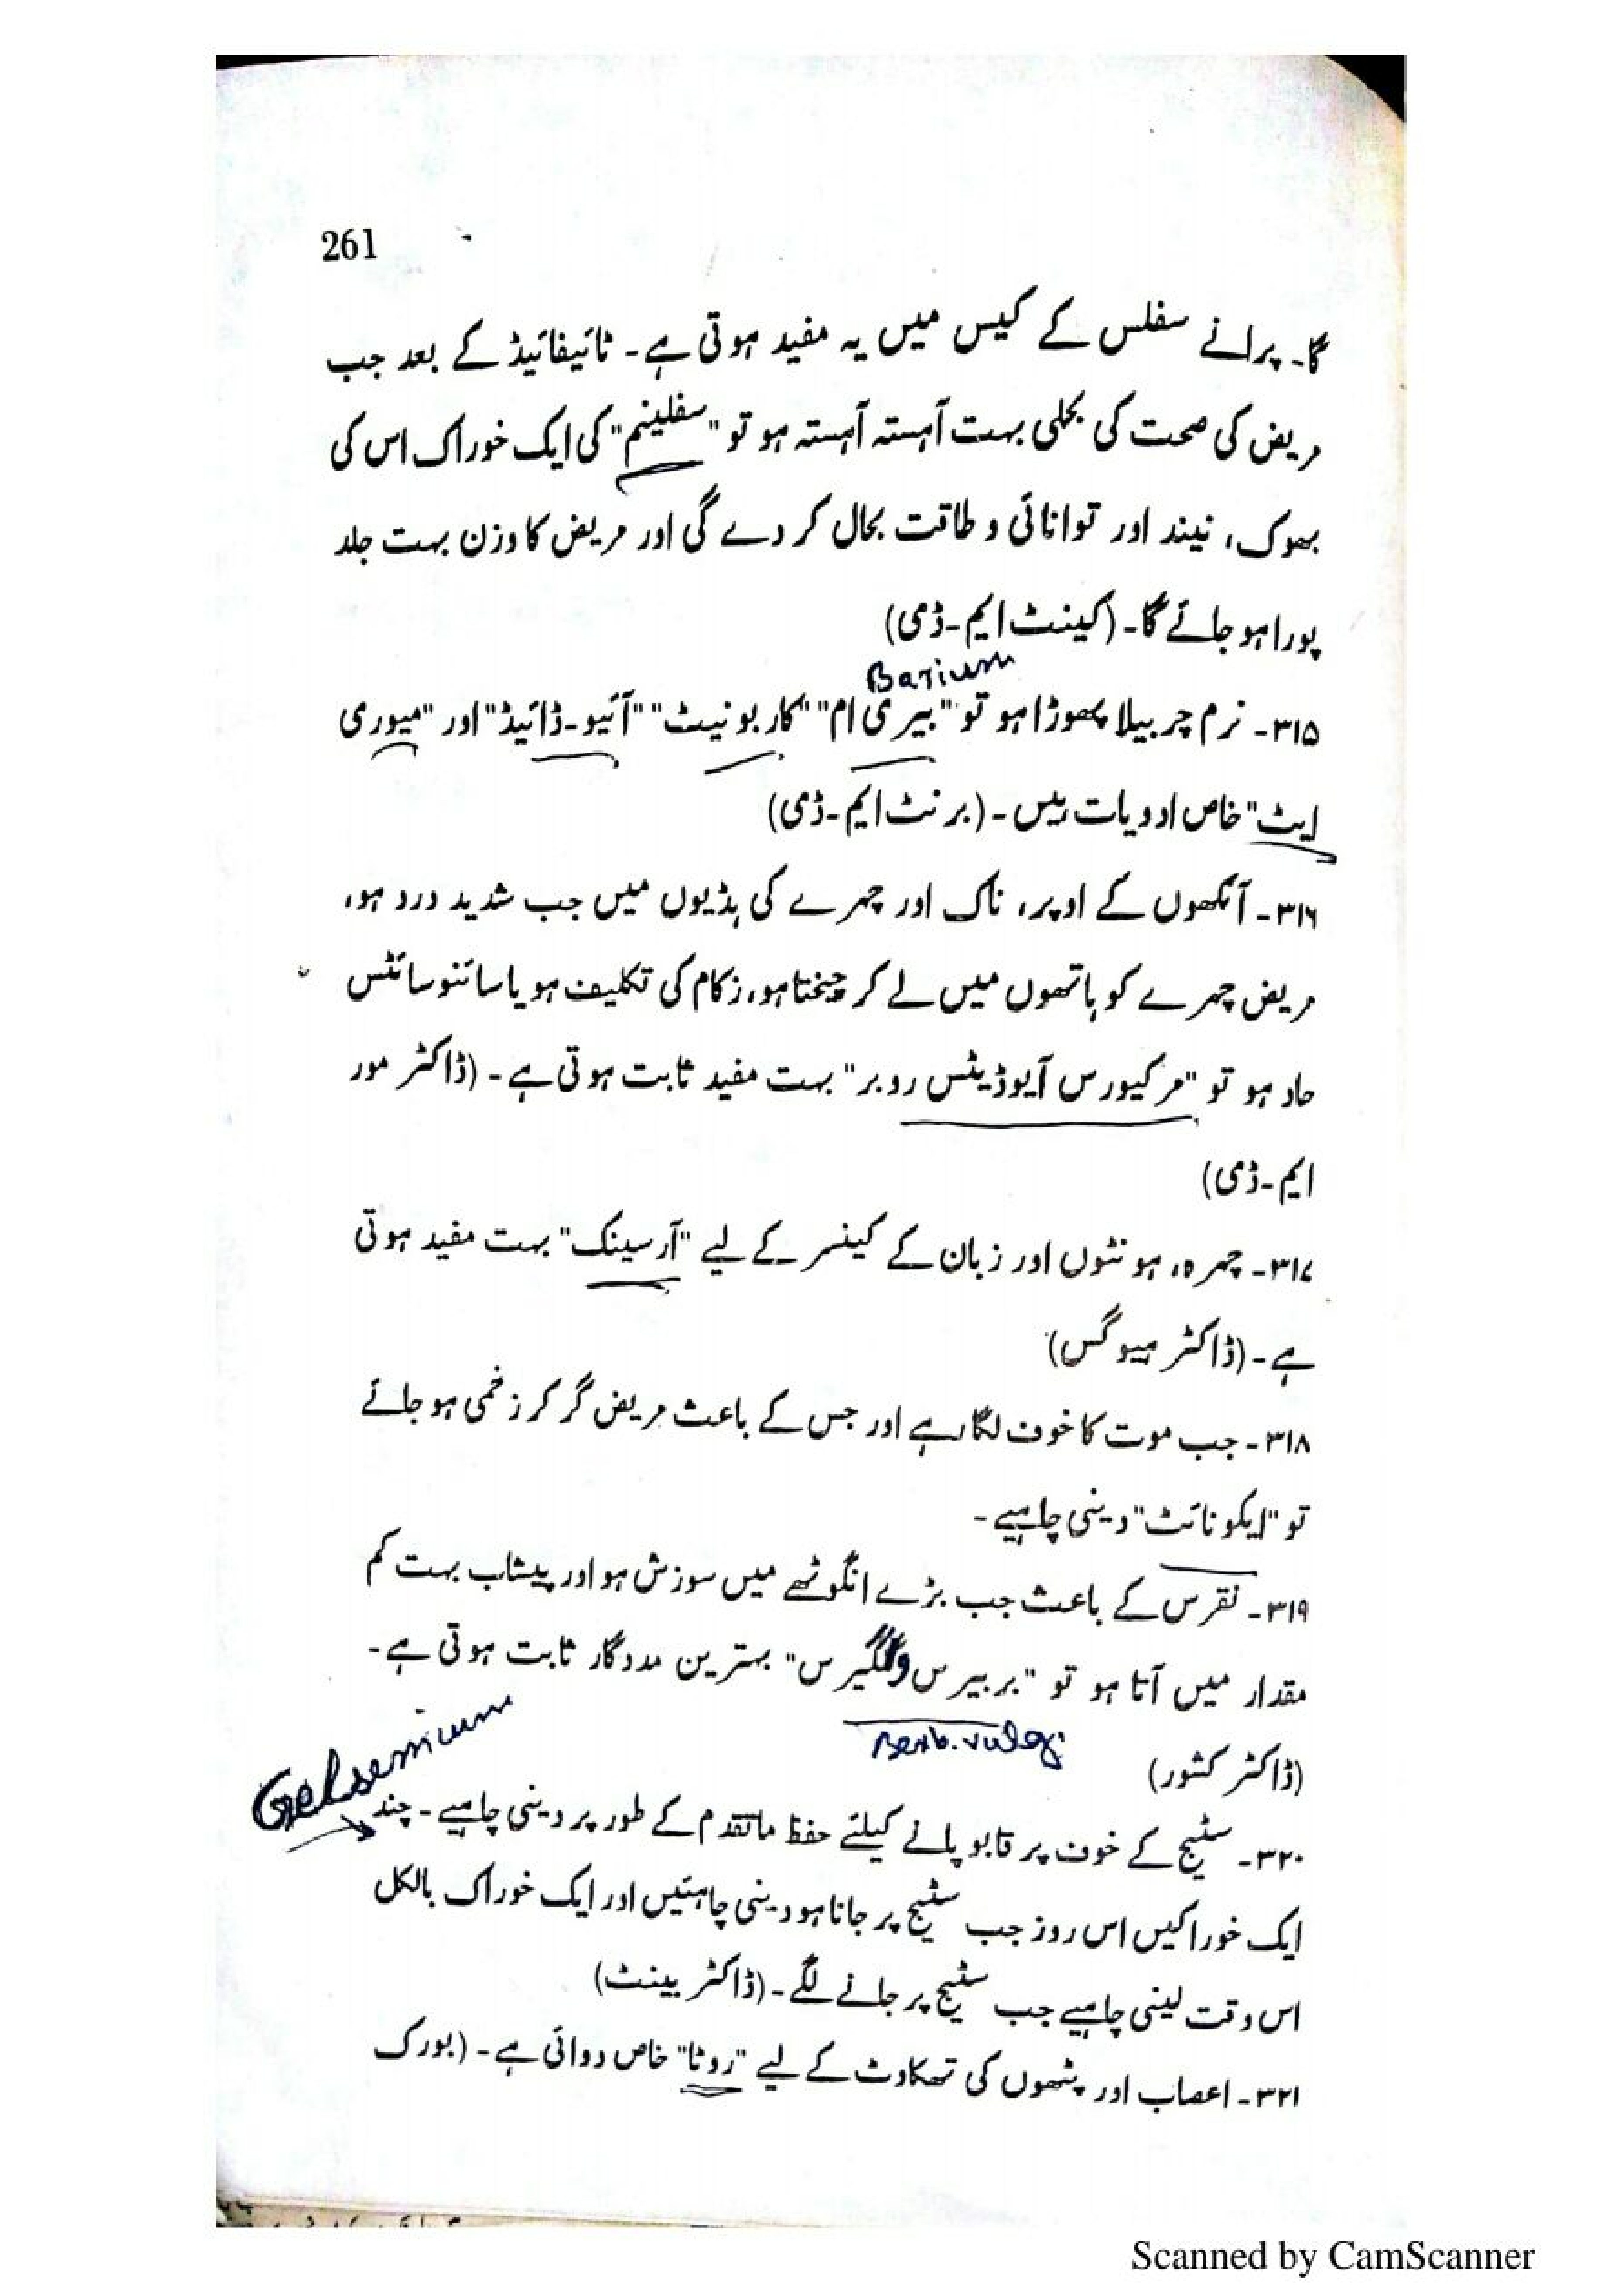 261
گا۔ پرانے سفلس کے کیس میں یہ مفید ہوتی ہے۔ ٹائیفائیڈ کے بعد جب
مریض کی صحت کی بحلی بہت آہستہ آہستہ ہو تو "سفلینم" کی ایک خوراک اس کی
بھوک، نیند اور توانائی و طاقت بحال کر دے گی اور مریض کا وزن بہت جلد
پورا ہو جائے گا۔ (کینٹ ایم۔ڈی)
Barium
۳۱۵۔ نرم چربیلا پھوڑا ہو تو "بیری ام" "کاربونیٹ" "آئیو۔ڈائیڈ" اور "میوری
ایٹ" خاص ادویات ہیں۔ (برنٹ ایم۔ڈی)
۳۱۶۔ آنکھوں کے اوپر، ناک اور چہرے کی ہڈیوں میں جب شدید درد ہو،
مریض چہرے کو ہاتھوں میں لے کر چیختا ہو، زکام کی تکلیف ہو یا سائنو سائٹس
حاد ہو تو "مرکیورس آیوڈیٹس روبر" بہت مفید ثابت ہوتی ہے۔ (ڈاکٹر مور
ایم۔ڈی)
۳۱۷۔ چہرہ، ہونٹوں اور زبان کے کینسر کے لیے "آرسینک" بہت مفید ہوتی
ہے۔ (ڈاکٹر ہیوگس)
۳۱۸۔ جب موت کا خوف لگا رہے اور جس کے باعث مریض گر کر زخمی ہو جائے
تو "ایکونائٹ" دینی چاہیے۔
۳۱۹۔ نقرس کے باعث جب بڑے انگوٹھے میں سوزش ہو اور پیشاب بہت کم
مقدار میں آتا ہو تو "بربیرس ولگیرس" بہترین مددگار ثابت ہوتی ہے۔
Berb. vulg.
(ڈاکٹر کشور)
Gelsemium
۳۲۰۔ سٹیج کے خوف پر قابو پانے کیلئے حفظ ماتقدم کے طور پر دینی چاہیے۔ چند
ایک خوراکیں اس روز جب سٹیج پر جانا ہو دینی چاہئیں اور ایک خوراک بالکل
اس وقت لینی چاہیے جب سٹیج پر جانے لگے۔ (ڈاکٹر بینٹ)
۳۲۱۔ اعصاب اور پٹھوں کی تھکاوٹ کے لیے "روٹا" خاص دوائی ہے۔ (بورک
Scanned by CamScanner